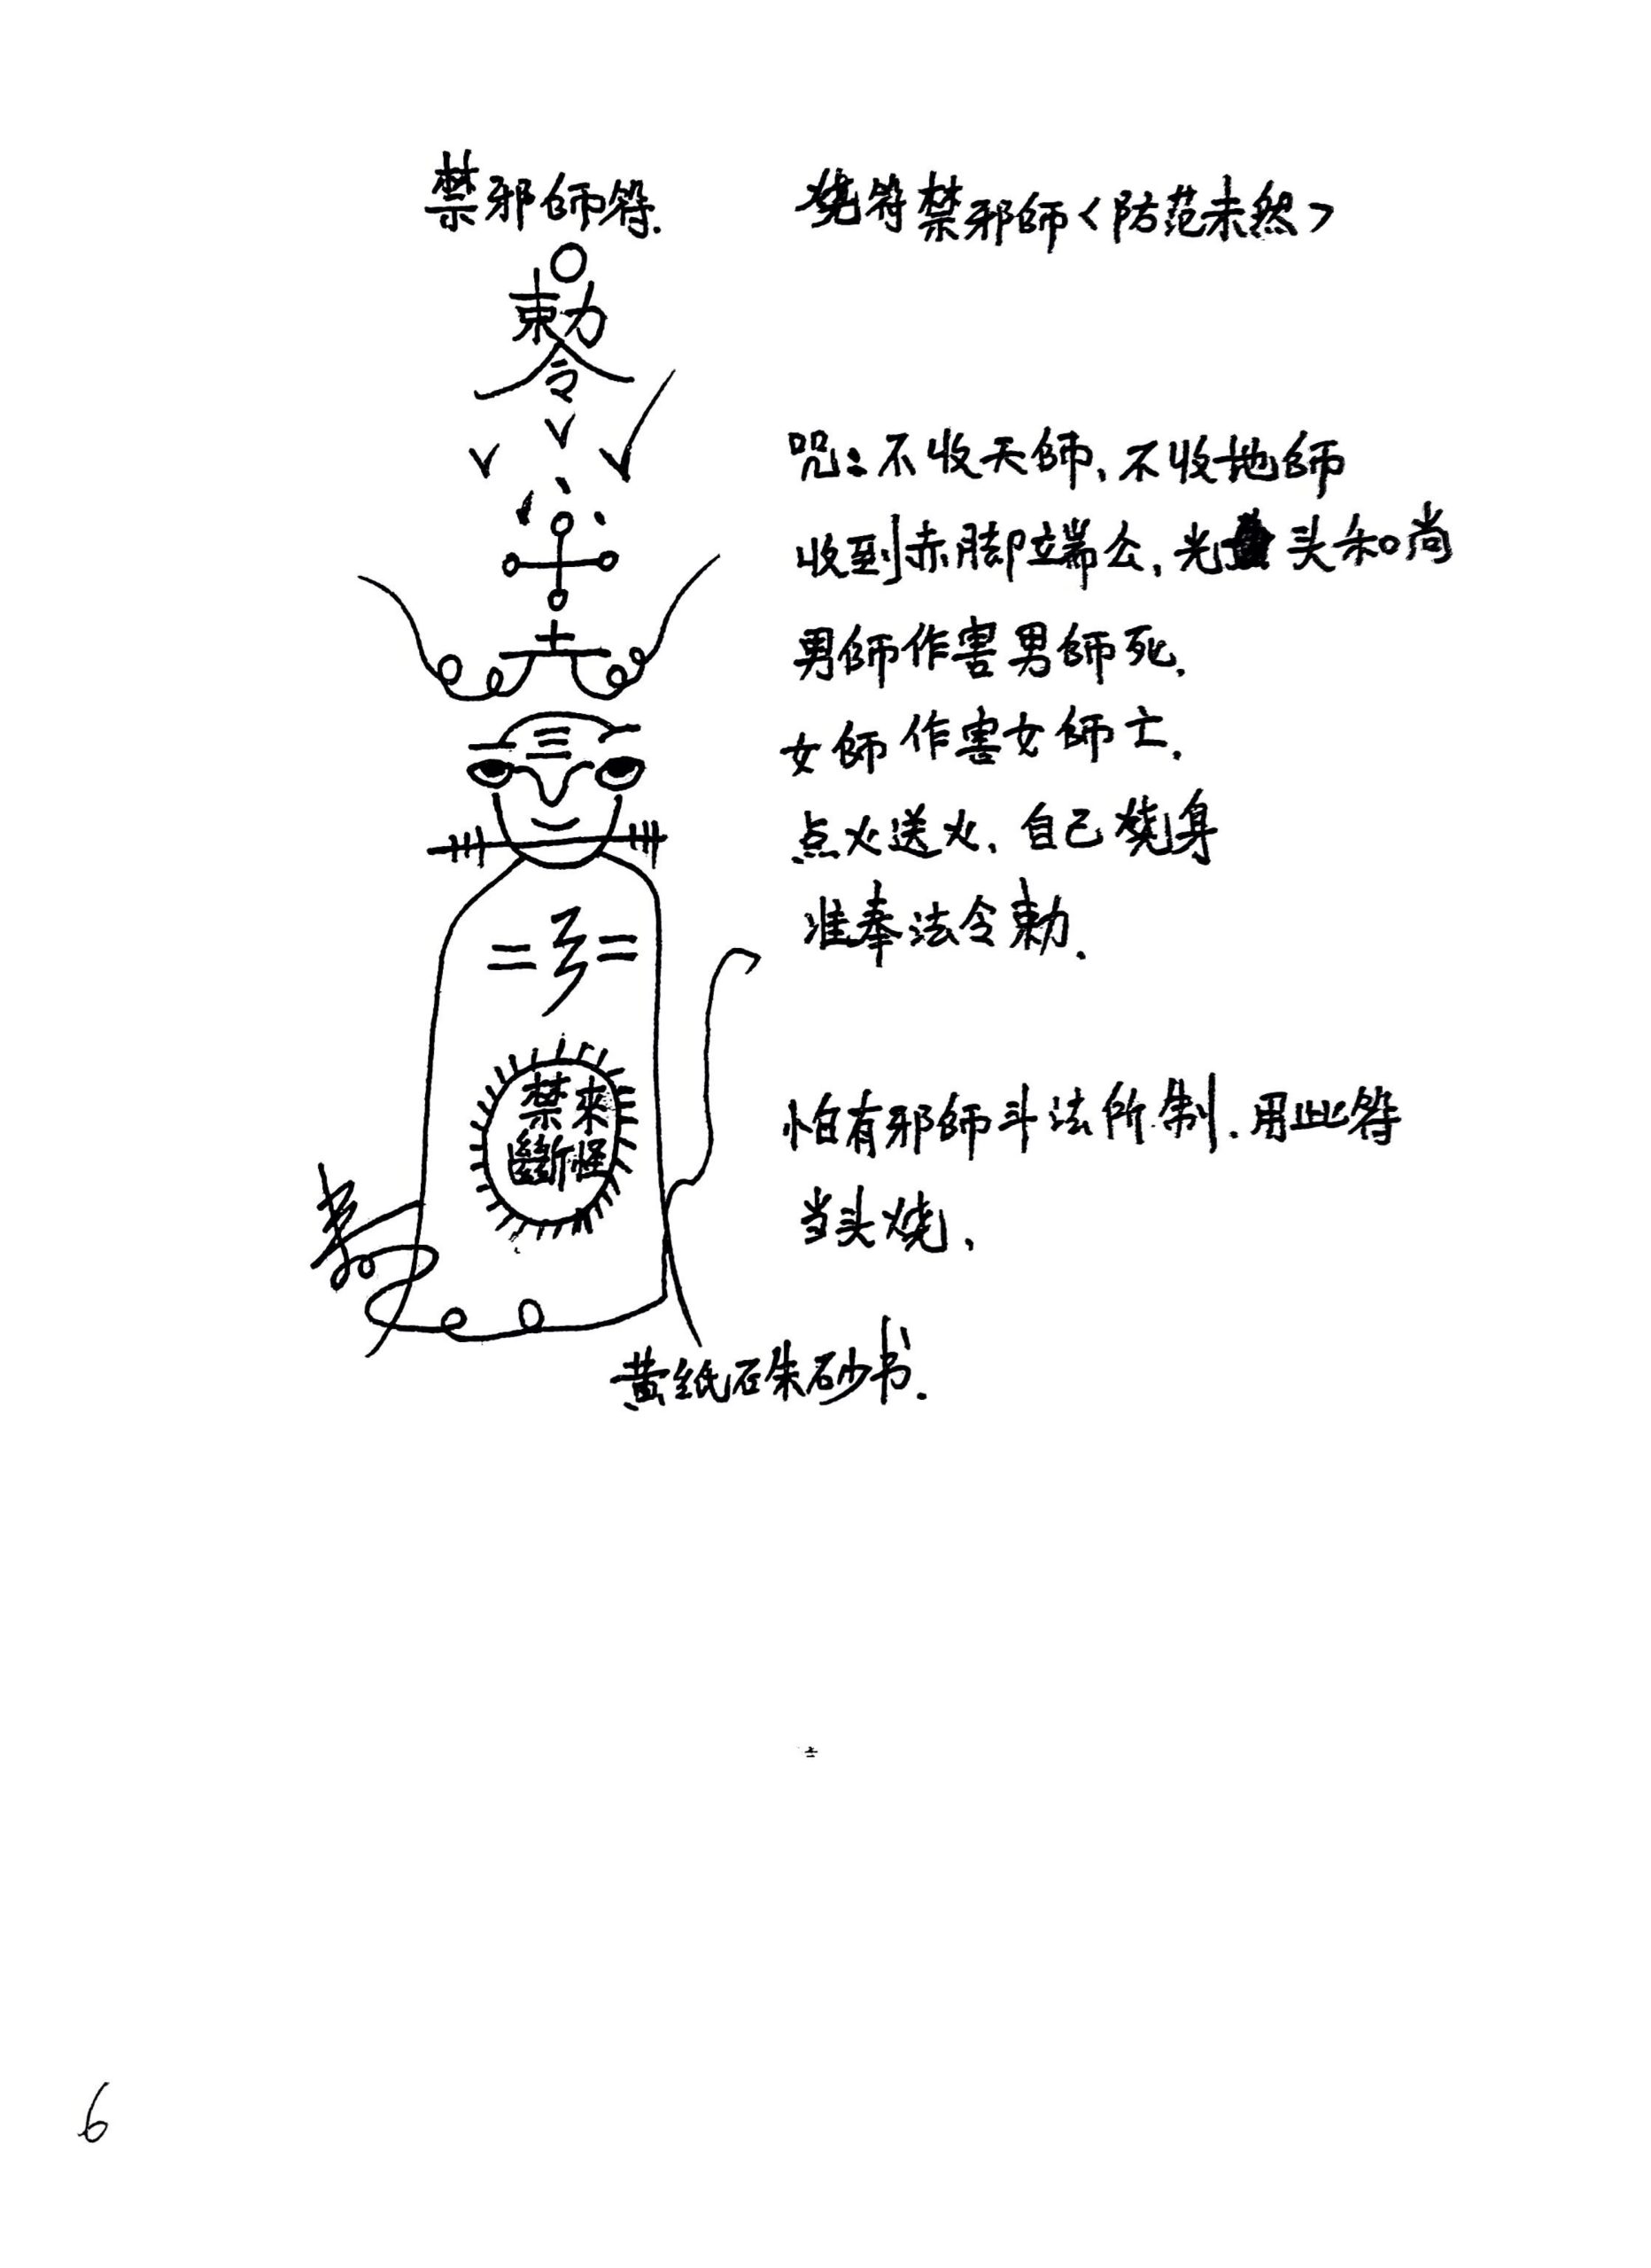 禁邪師符.
烧符禁邪師<防范未然>
敕令
咒:不收天師、不收地師
收到赤脚端公,光头和尚
男師作害男師死.
女師作害女師亡.
点火送火、自己烧身
准奉法令敕.
禁來
斷怪
怕有邪師斗法所制.用此符
当头烧、
黄纸石朱砂书.
6